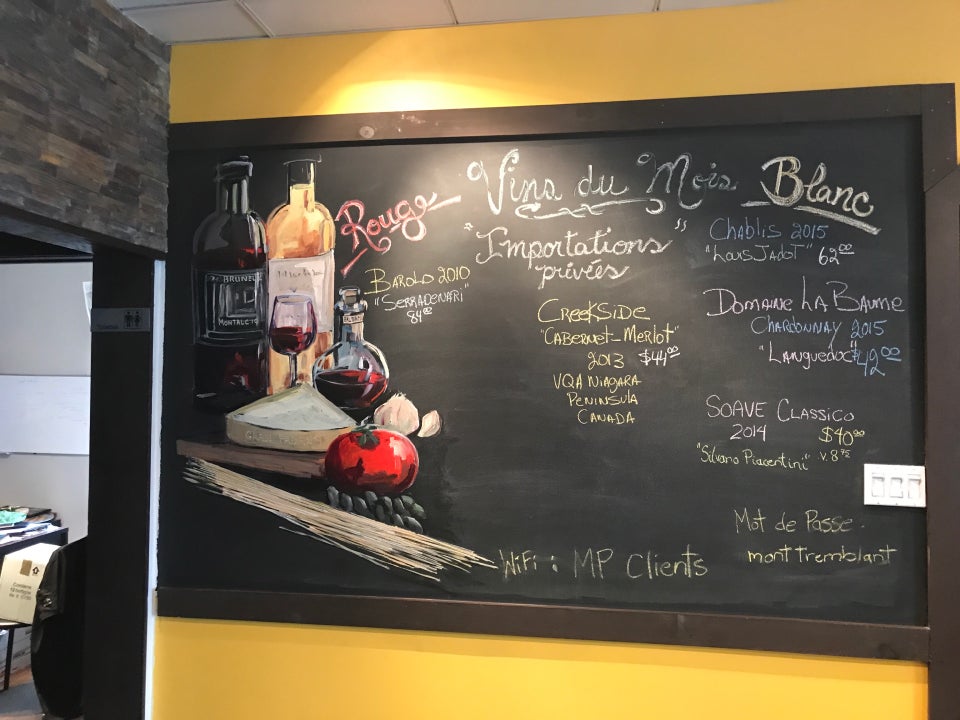 Vins du Mois
"Importations
privées"
Rouge
Barolo 2010
"Serradenari"
84.00
Creekside
"Cabernet-Merlot"
2013 $44.00
VQA Niagara
Peninsula
Canada
Blanc
Chablis 2015
"Louis Jadot" 62.00
Domaine La Baume
Chardonnay 2015
"Languedoc" $42.00
Soave Classico
2014 $40.00
"Silvano Piacentini" v.8.75
WiFi : MP Clients
Mot de Passe.
mont tremblant
Brunell
Montalc